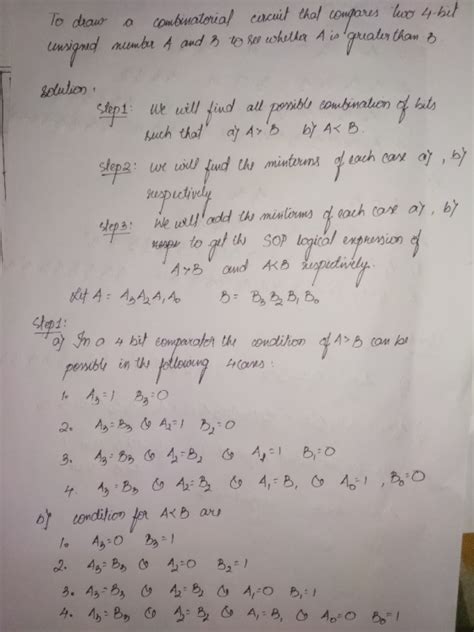 To draw a combinatorial circuit that compares two 4-bit
unsigned number A and B to see whether A is greater than B.
Solution.
Step1: We will find all possible combination of bits
such that a) A>B b) A<B.
Step2: we will find the minterms of each case a), b)
respectively
Step3: We will add the minterms of each case a), b)
respe to get the SOP logical expression of
A>B and A<B respectively.
Let A = A₃A₂A₁A₀ B = B₃B₂B₁B₀
Step1:
a) In a 4 bit comparator the condition of A>B can be
possible in the following 4 cases:
1. A₃=1 B₃=0
2. A₃=B₃ & A₂=1 B₂=0
3. A₃=B₃ & A₂=B₂ & A₁=1 B₁=0
4. A₃=B₃ & A₂=B₂ & A₁=B₁ & A₀=1, B₀=0
b) condition for A<B are
1. A₃=0 B₃=1
2. A₃=B₃ & A₂=0 B₂=1
3. A₃=B₃ & A₂=B₂ & A₁=0 B₁=1
4. A₃=B₃ & A₂=B₂ & A₁=B₁ & A₀=0 B₀=1